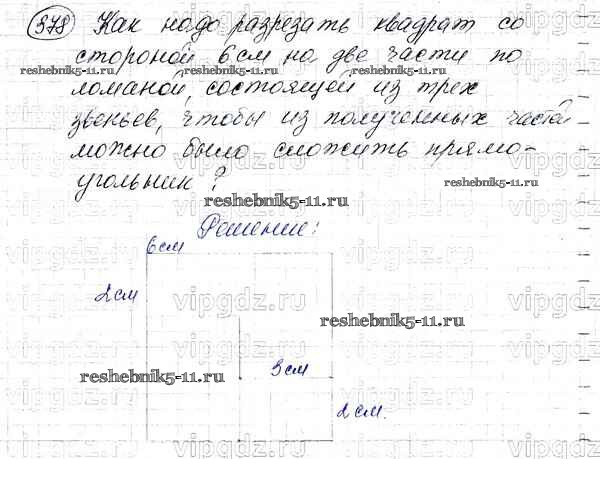 378 Как надо разрезать квадрат со
стороной 6 см на две части по
reshebnik5-11.ru reshebnik5-11.ru
ломаной, состоящей из трех
звеньев, чтобы из полученных частей
можно было сложить прямо-
угольник?
reshebnik5-11.ru
reshebnik5-11.ru
Решение:
6 см
2 см
vipgdz.ru vipgdz.ru
reshebnik5-11.ru
3 см
reshebnik5-11.ru
2 см.
vipgdz.ru vipgdz.ru